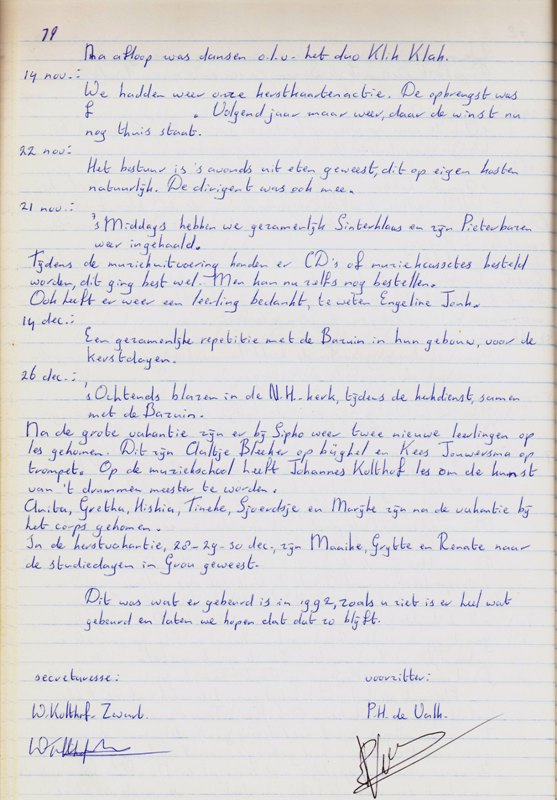 79
Na afloop was dansen o.l.v. het duo Klik Klak.
14 nov.:
We hadden weer onze kerstkaartenactie. De opbrengst was
f . Volgend jaar maar weer, daar de winst nu
nog thuis staat.
22 nov:
Het bestuur is 's avonds uit eten geweest, dit op eigen kosten
natuurlijk. De dirigent was ook mee.
21 nov.:
's Middags hebben we gezamenlijk Sinterklaas en zijn Pieterbazen
weer ingehaald.
Tijdens de muziekuitvoering konden er CD's of muziekcassetes besteld
worden, dit ging best wel. Men kan nu zelfs nog bestellen.
Ook heeft er weer een leerling bedankt, te weten Engeline Jonk.
14 dec.:
Een gezamenlijke repetitie met de Bazuin in hun gebouw, voor de
kerstdagen.
26 dec.:
's Ochtends blazen in de N.H.-kerk, tijdens de kerkdienst, samen
met de Bazuin.
Na de grote vakantie zijn er bij Sipho weer twee nieuwe leerlingen op
les gekomen. Dit zijn Aaltje Bleeker op büghel en Kees Jouwersma op
trompet. Op de muziekschool heeft Johannes Kolthof les om de kunst
van 't drummen meester te worden.
Anita, Gretha, Hiskia, Tineke, Sjoerdsje en Marijke zijn na de vakantie bij
het corps gekomen.
In de kerstvakantie, 28-29-30 dec., zijn Maaike, Grytte en Renate naar
de studiedagen in Grou geweest.
Dit was wat er gebeurd is in 1992, zoals u ziet is er heel wat
gebeurd en laten we hopen dat dat zo blijft.
secretaresse: voorzitter:
W. Kolthof-Zwart. P.H. de Valk.